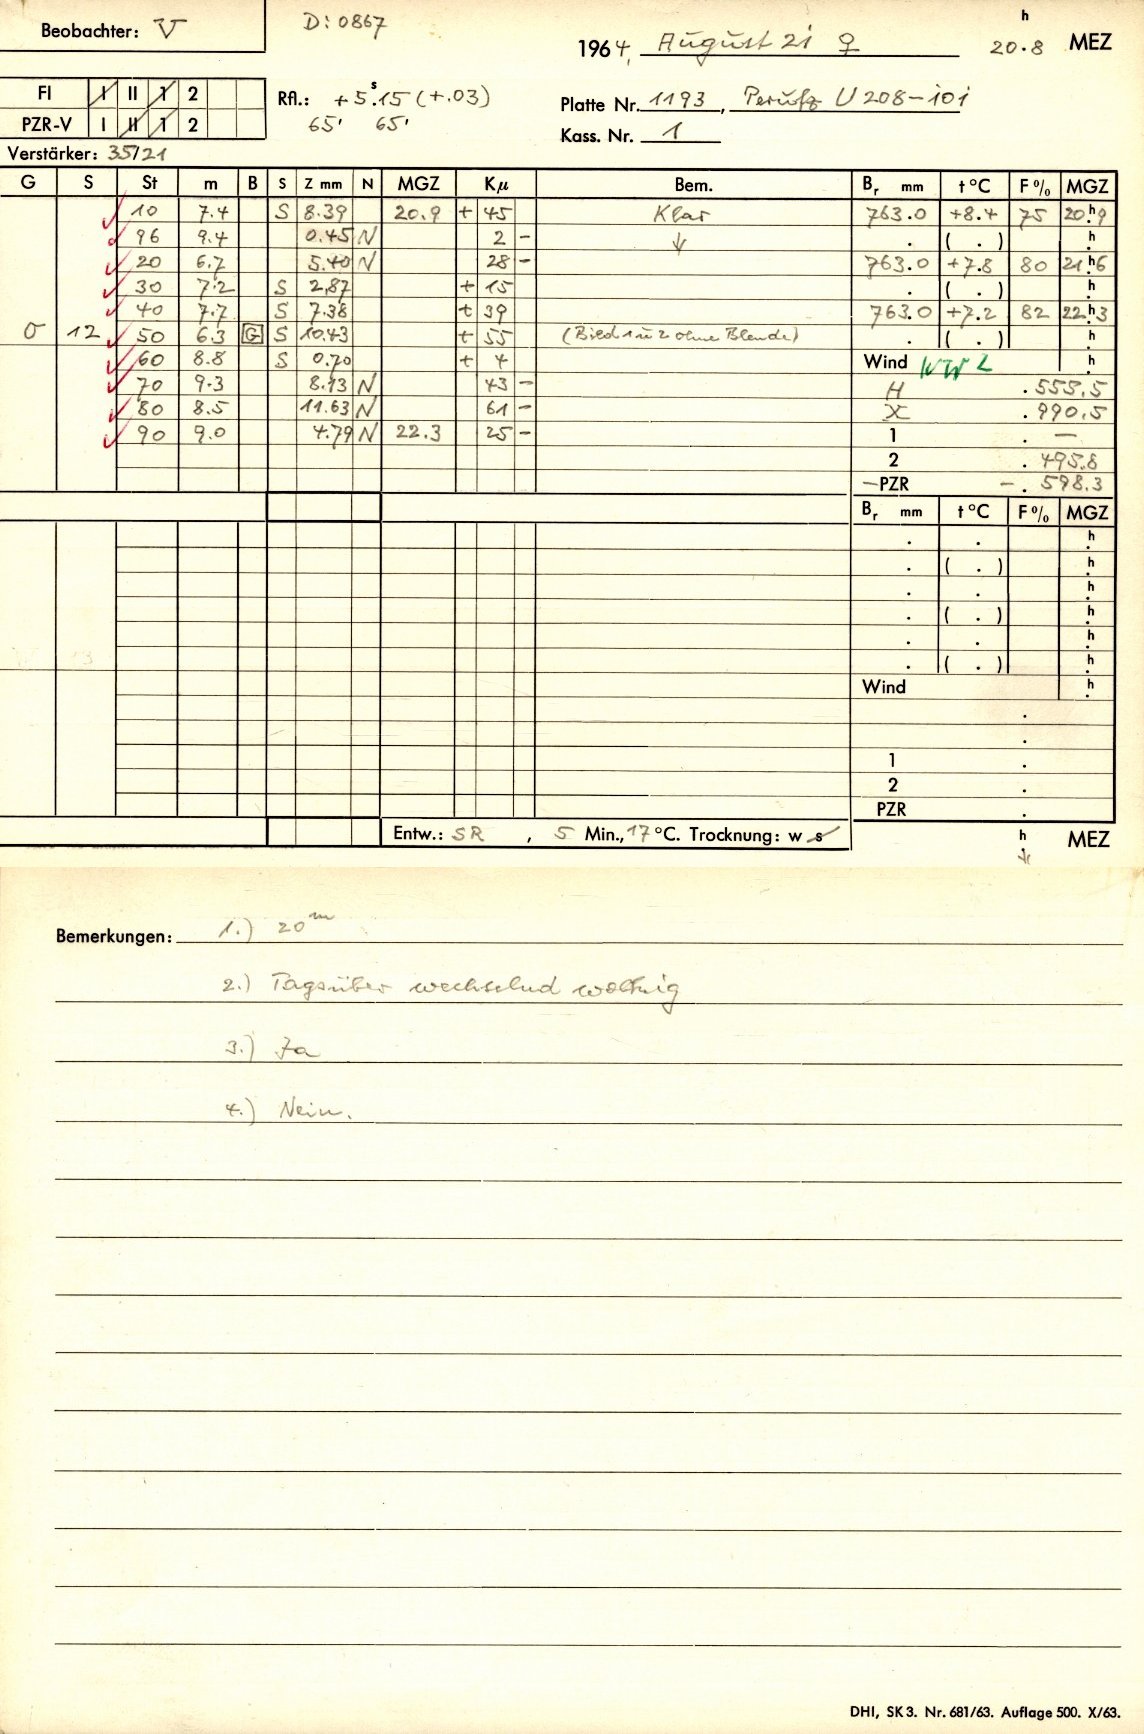 Beobachter: V
D: 0867
1964, August 21 ♀
20.8 h MEZ
FI I II 1 2
PZR-V I II 1 2
Rfl.: +5.ˢ15 (+.03)
65' 65'
Platte Nr. 1193, Perutz U 208-101
Kass. Nr. 1
Verstärker: 35/21
G S St m B S Z mm N MGZ Kμ Bem. Br mm t °C F% MGZ
10 7.4 S 8.39 20.9 + 45 Klar 763.0 +8.4 75 20.h9
96 9.4 0.45 N 2 - ↓ . ( . ) .h
20 6.7 5.40 N 28 - 763.0 +7.8 80 21.h6
30 7.2 S 2.87 + 15 . ( . ) .h
40 7.7 S 7.38 + 39 763.0 +7.2 82 22.h3
σ 12 50 6.3 G S 10.43 + 55 (Bild 1 u 2 ohne Blende) . ( . ) .h
60 8.8 S 0.70 + 4 Wind NW 2 .h
70 9.3 8.13 N 43 - H .553.5
80 8.5 11.63 N 61 - X .990.5
90 9.0 4.79 N 22.3 25 - 1 . —
2 .495.8
-PZR -. 598.3
Br mm t °C F% MGZ
. . .h
. ( . ) .h
. . .h
. ( . ) .h
. . .h
. ( . ) .h
Wind .h
.
.
1 .
2 .
PZR .
Entw.: SR , 5 Min., 17 °C. Trocknung: w s
h MEZ
Bemerkungen: 1.) 20ᵐ
2.) Tagsüber wechselnd wolkig
3.) Ja
4.) Nein.
DHI, SK 3. Nr. 681/63. Auflage 500. X/63.